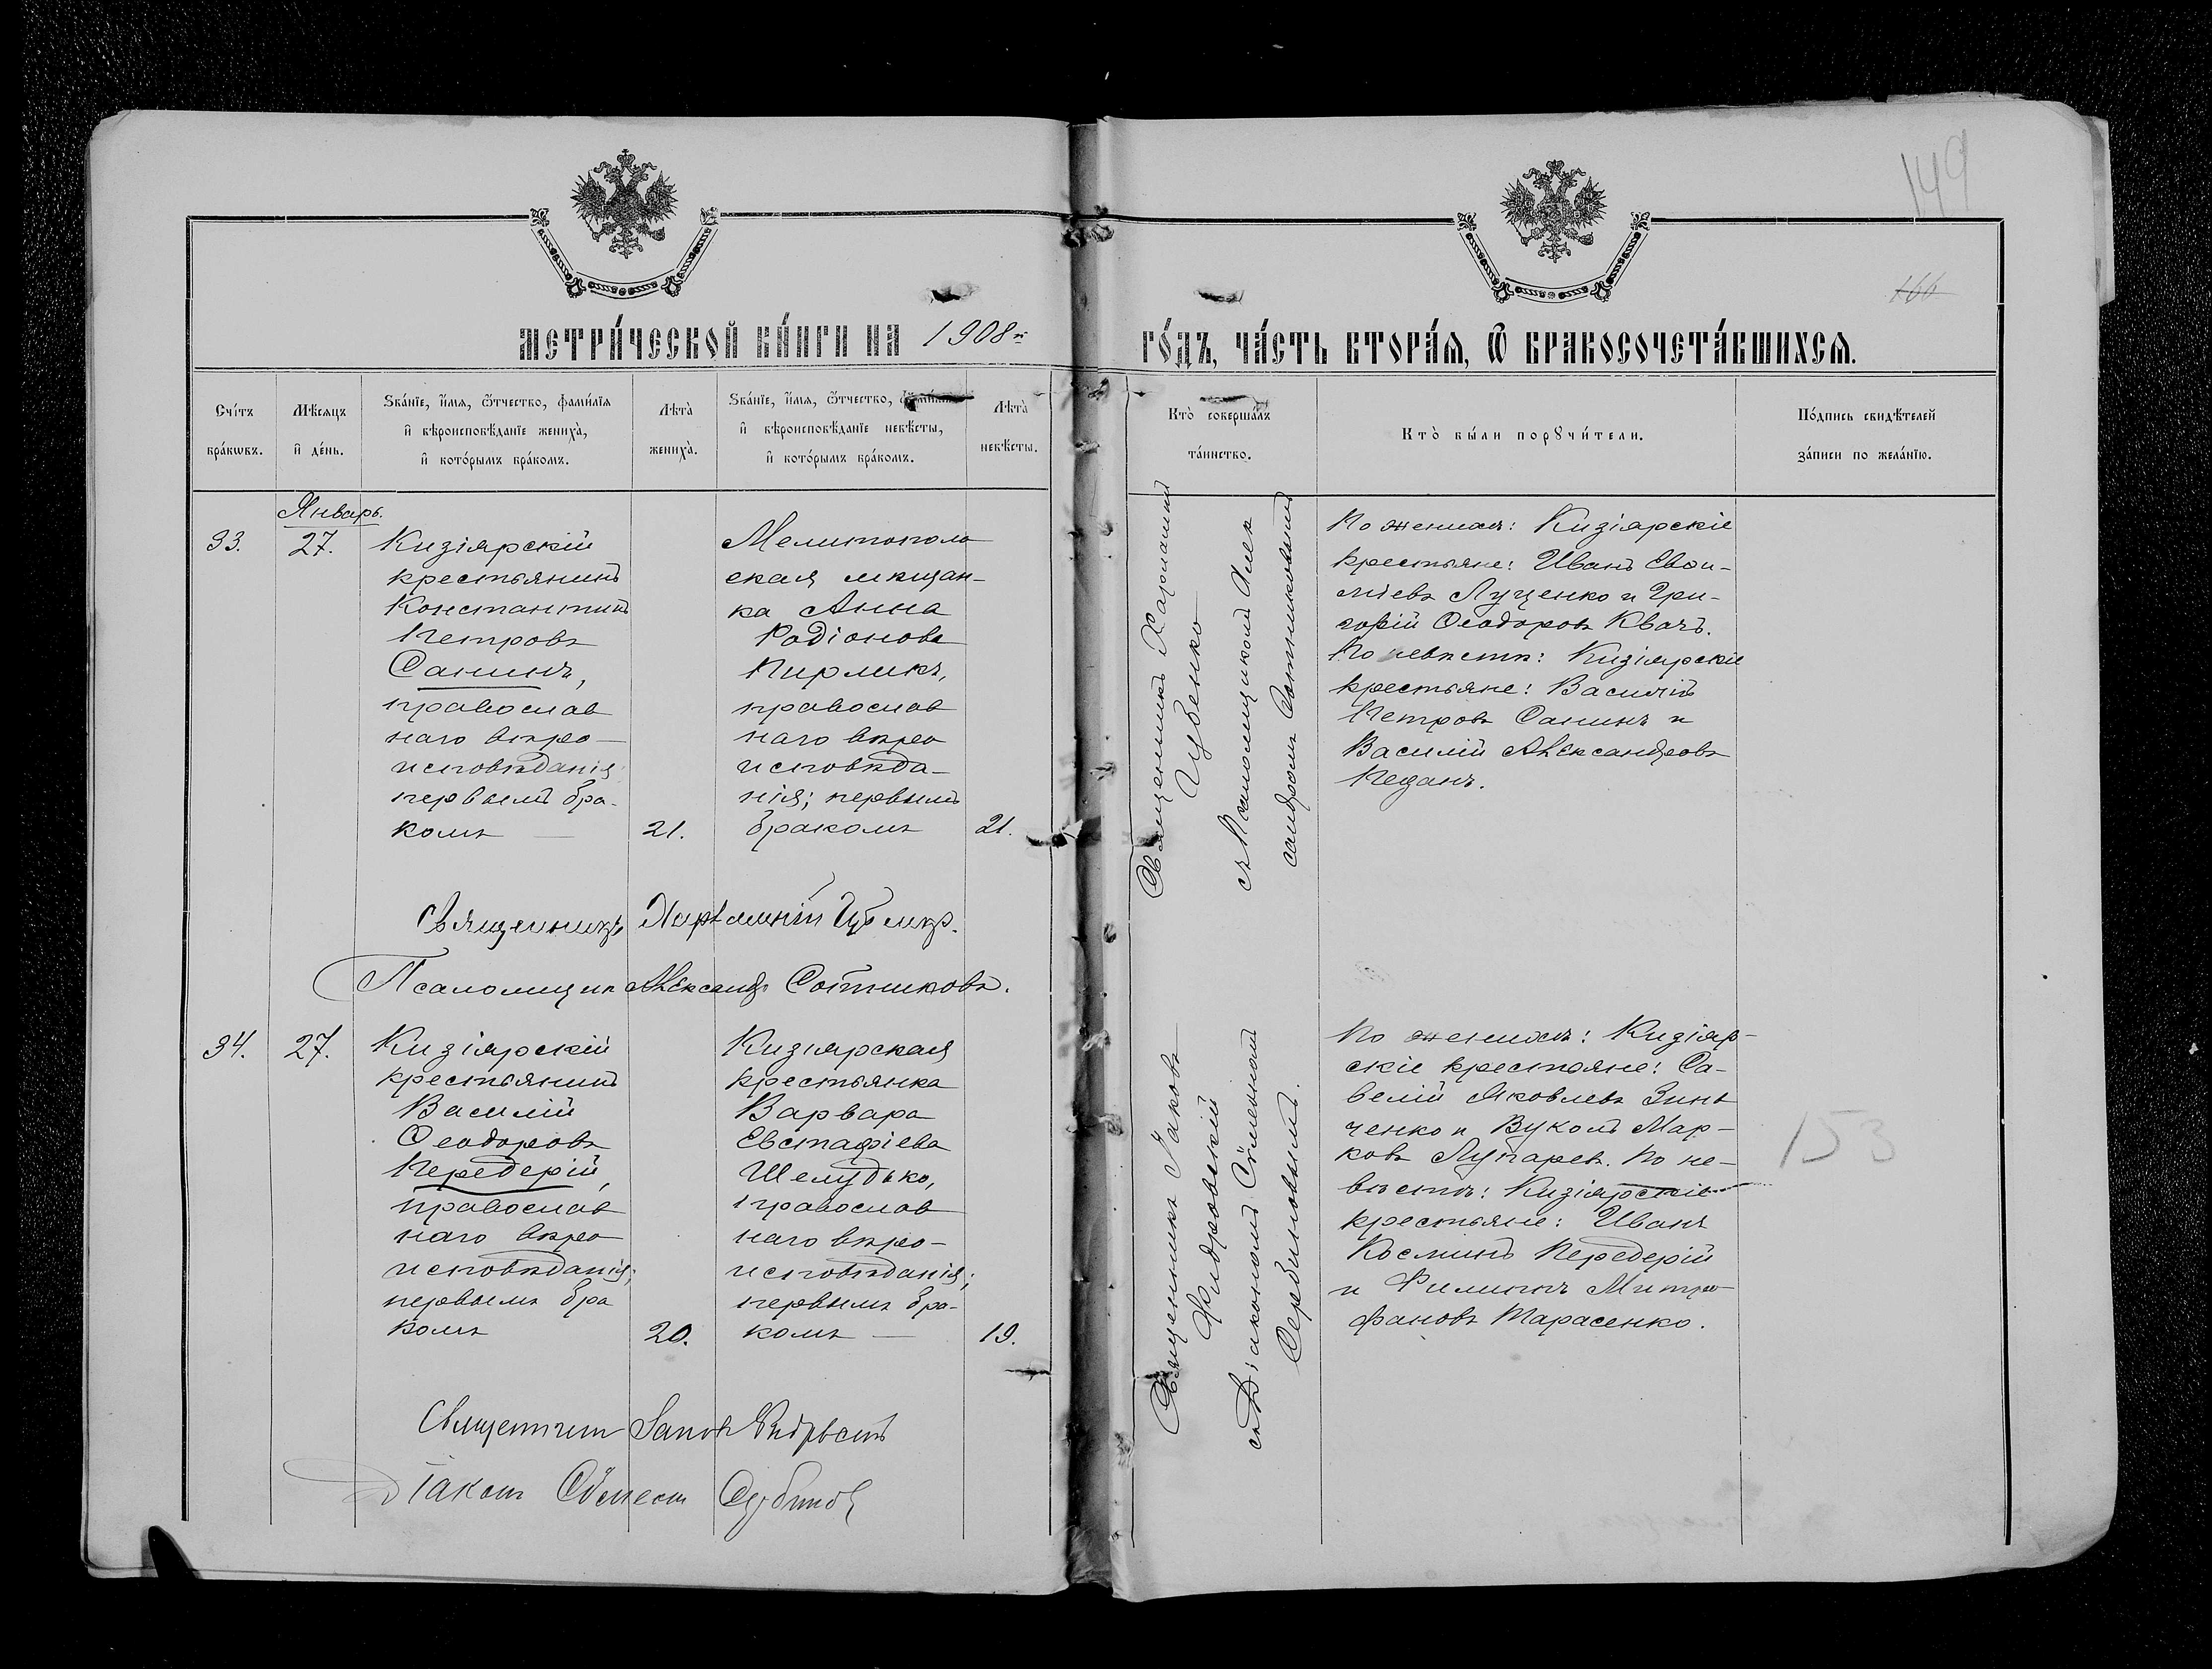 149
166
МЕТРИ́ЧЕСКОЙ КНИ́ГИ НА 1908й ГО́ДЪ, ЧА́СТЬ ВТОРА́Я, Ѡ БРАКОСОЧЕТА́ВШИХСЯ.
Сче́тъ бра́кѡвъ.
Мѣ́сяцъ и де́нь.
Зва́нїе, и́мя, ѻ́тчество, фами́лїя и вѣроисповѣ́данїе жениха̀, и кото́рымъ бра́комъ.
Лѣ́та жениха̀.
Зва́нїе, и́мя, ѻ́тчество, фами́лїя и вѣроисповѣ́данїе невѣ́сты, и кото́рымъ бра́комъ.
Лѣ́та невѣ́сты.
Кто̀ соверша́лъ та́инство.
Кто̀ бы́ли порꙋчи́тели.
По́дпись свидѣ́телей за́писи по жела́нїю.
Январь.
33.
27.
Кизіярскій
крестьянинъ
Константинъ
Петровъ
Санинъ,
православ
наго вѣро-
исповѣданія;
первымъ бра-
комъ
21.
Мелитополь
ская мѣщан-
ка Анна
Родіонова
Пирликъ,
православ
наго вѣро
исповѣда-
нія; первымъ
бракомъ
21.
Священникъ Харлампій
Цубенко
съ Псаломщикомъ Алек
сандромъ Сотниковымъ
По женихѣ: Кизіярскіе
крестьяне: Иванъ
Луценко и Гри-
горій Ѳеодоровъ Квачъ.
По невѣстѣ: Кизіярскіе
крестьяне: Василій
Петровъ Санинъ и
Василій Александровъ
Священникъ Харлампій
Псаломщикъ Александръ Сотниковъ.
34.
27.
Кизіярскій
крестьянинъ
Василій
Ѳеодоровъ
Передерій,
православ
наго вѣро
исповѣданія;
первымъ бра
комъ
20.
Кизіярская
крестьянка
Варвара
Евстафіева
Шелудько,
православ
наго вѣро-
исповѣданія;
первымъ бра-
комъ
19.
Священникъ Іаковъ
Фидровскій
съ Діакономъ Сѵмеономъ
Сербиновымъ.
По женихѣ: Кизіяр-
скіе крестьяне: Са-
велій Яковлевъ Зинь
ченко и Вуколъ Мар-
ковъ Лупаревъ. По не-
вѣстѣ: Кизіярскіе
крестьяне: Иванъ
Косминъ Передерій
и Филиппъ Митро
фановъ Тарасенко.
153
Священникъ Іаковъ
Діаконъ Сѵмеонъ Сербиновъ